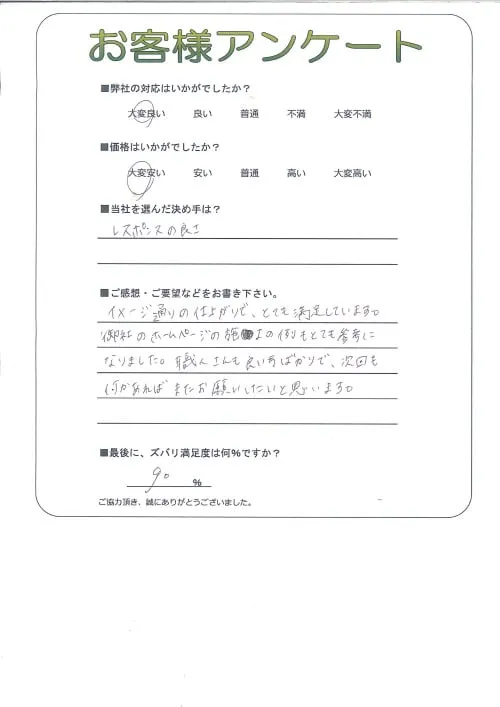 お客様アンケート
■弊社の対応はいかがでしたか？
大変良い 良い 普通 不満 大変不満
■価格はいかがでしたか？
大変安い 安い 普通 高い 大変高い
■当社を選んだ決め手は？
レスポンスの良さ
■ご感想・ご要望などをお書き下さい。
イメージ通りの仕上がりで、とても満足しています。
御社のホームページの施工の例もとても参考に
なりました。職人さんも良い方ばかりで、次回も
何かあればまたお願いしたいと思います。
■最後に、ズバリ満足度は何％ですか？
90 ％
ご協力頂き、誠にありがとうございました。